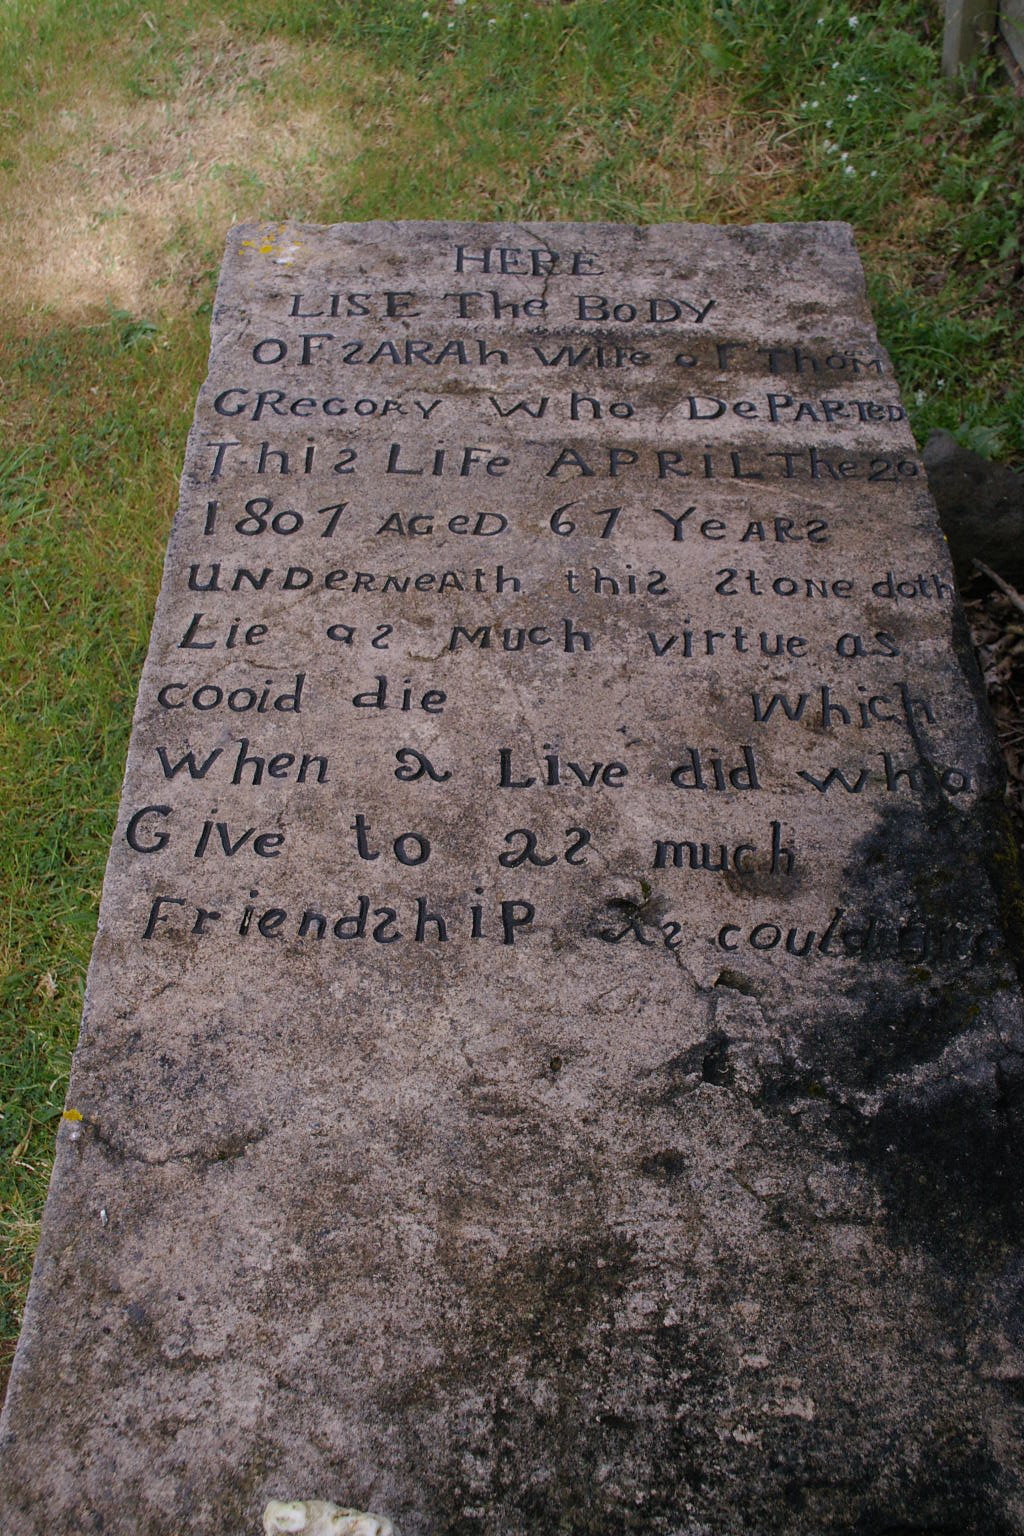 HERE
LISE The BODY
OF SARAh Wife of Thom
GReGORY Who DePARTeD
ThiS LiFe APRiL The 20
1807 AGeD 67 YeARS
UNDeRNeATh thiS StoNe doth
Lie as Much virtue as
cooid die Which
When a Live did who
Give to as much
FriendshiP as could